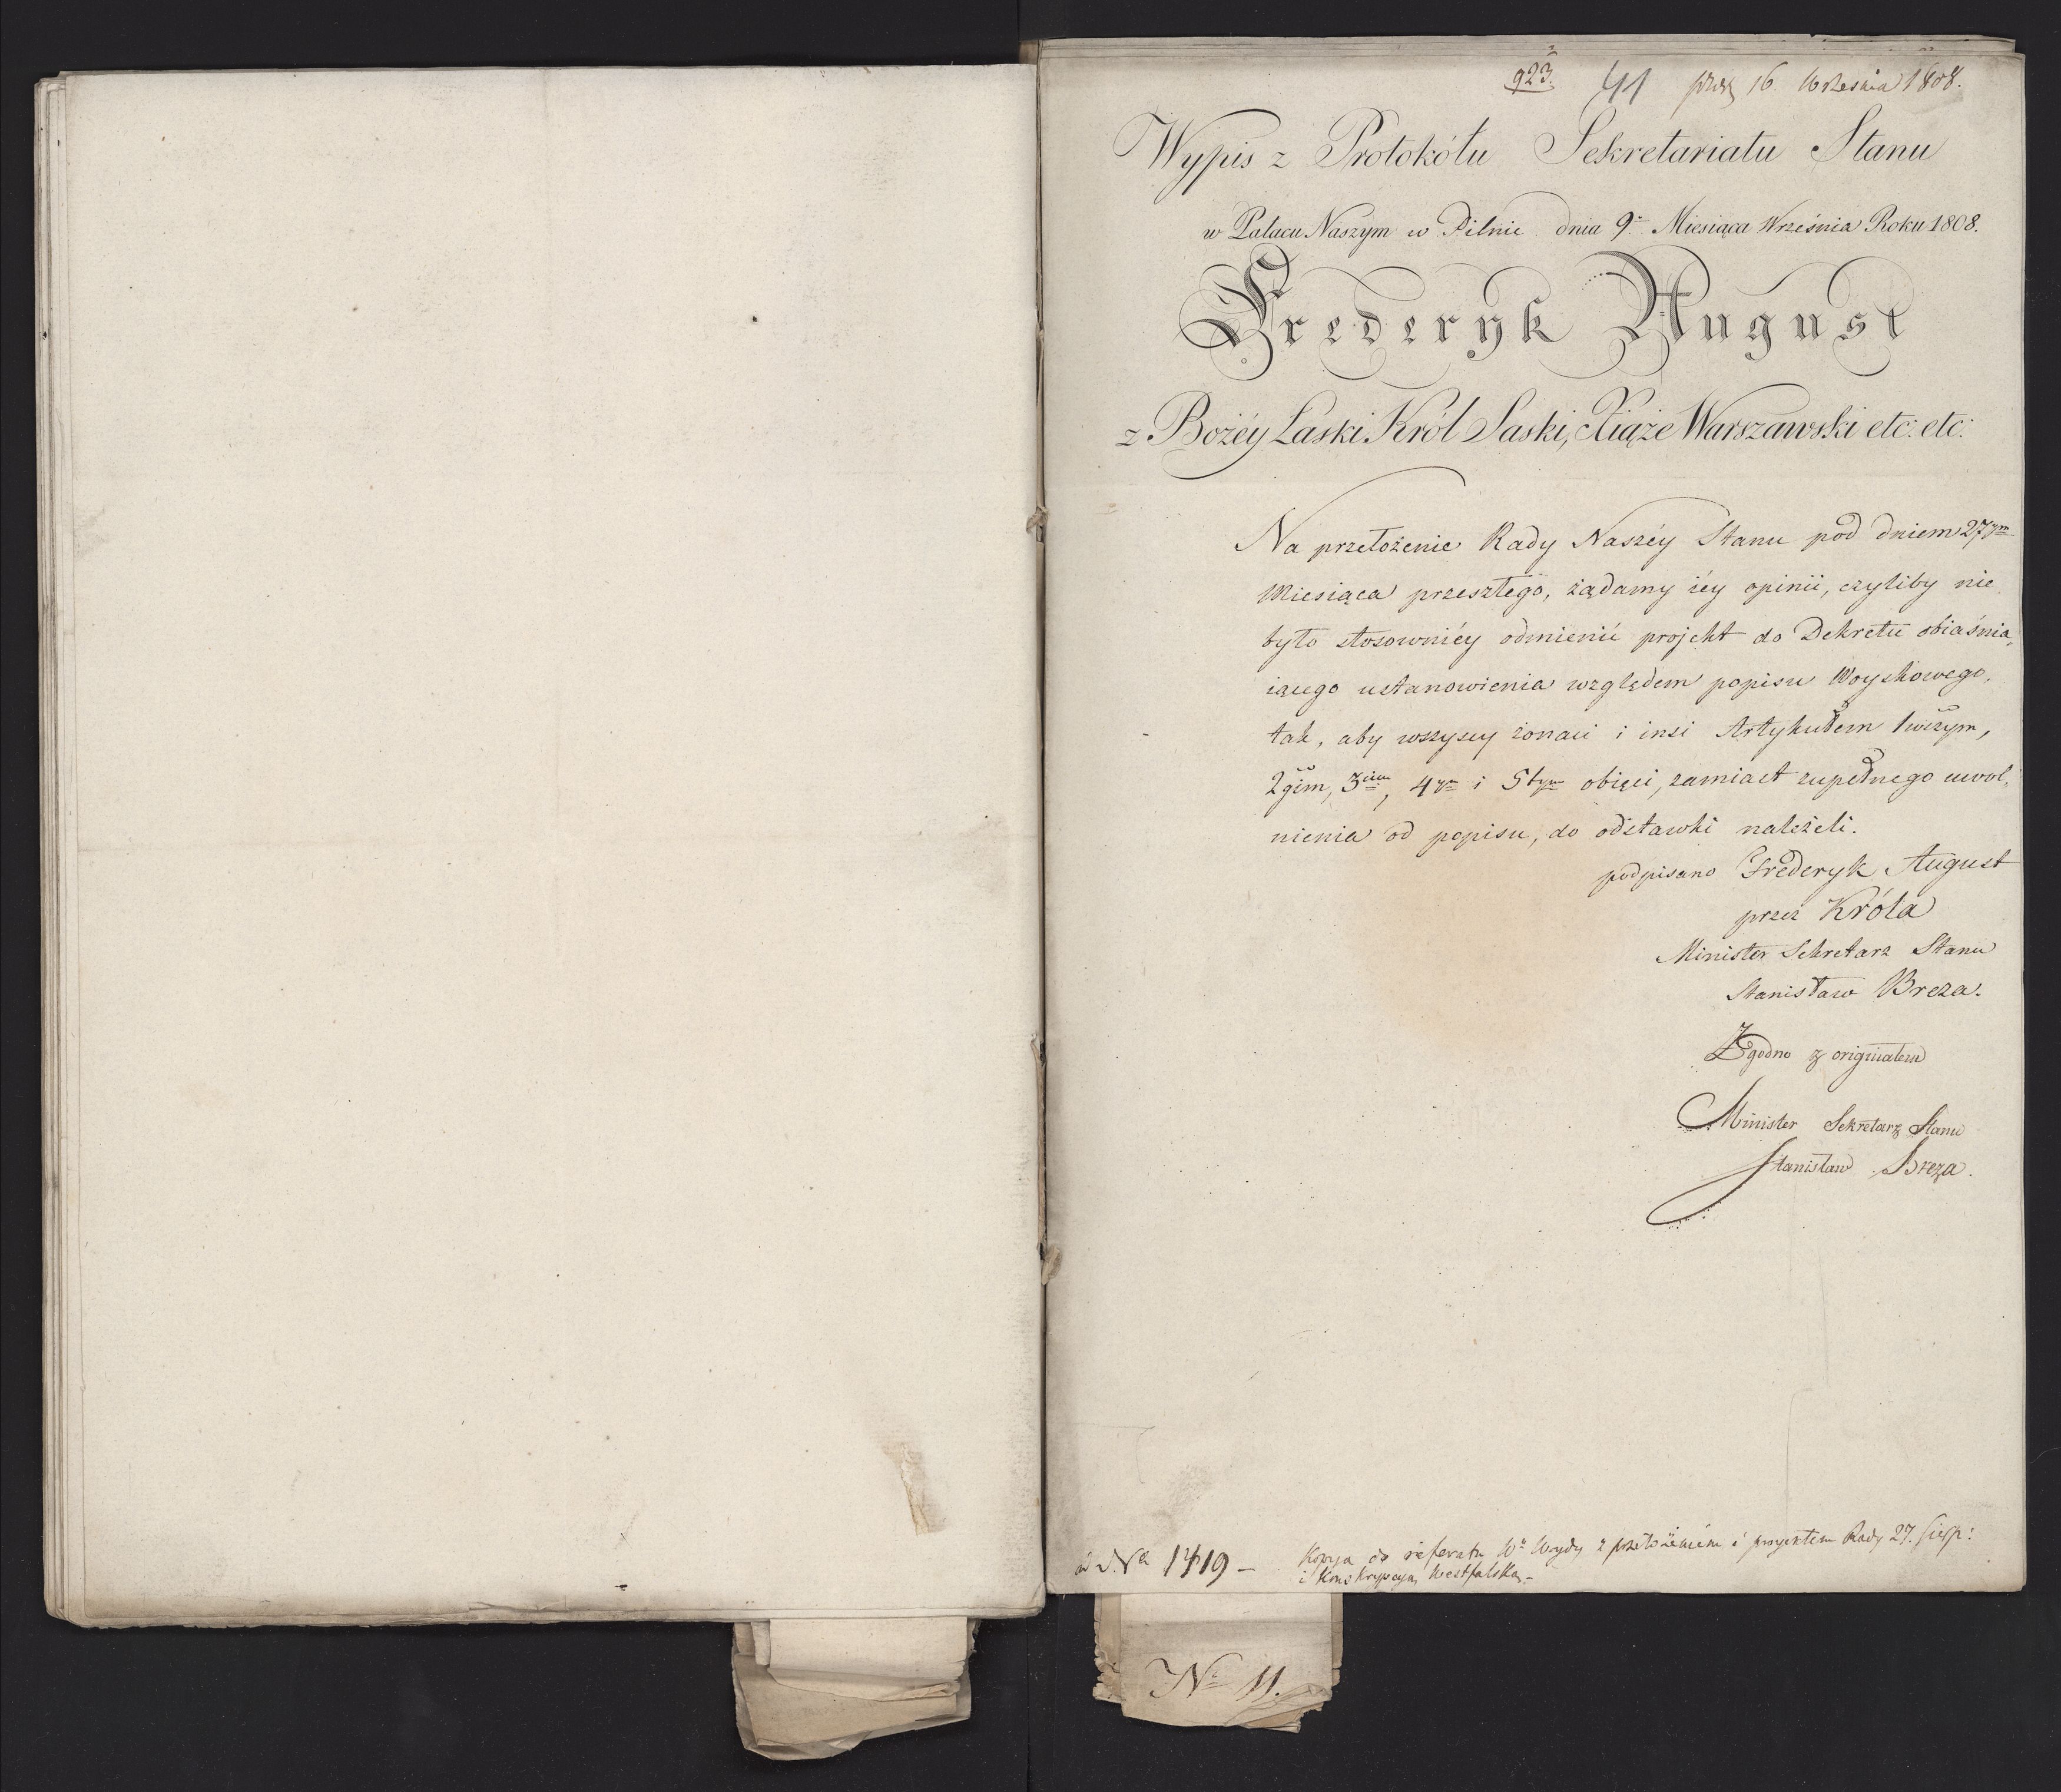 923. 41 prez 16 Września 1808.
Wypis z Protokółu Sekretariatu Stanu
w Pałacu Naszym w Pilnic dnia 9º Miesiąca Września Roku 1808.
Frederyk August
z Bożéy Łaski Król Saski, Xiąże Warszawski etc: etc:
Na przełożenie Rady Naszéy Stanu pod dniem 27ym
Miesiąca przeszłego, żądamy iéy opinii, czyliby nie
było stosownićy odmienić projekt do Dekretu obiaśnia,
iącego ustanowienia względem popisu Woyskowego,
tak, aby wszyscy żonaci i insi Artykułem 1wszym,
2gim, 3cim, 4ym i 5tym obięci, zamiast zupełnego uwol,
nienia od popisu, do odstawki należeli.
podpisano Frederyk August
przez Króla
Minister Sekretarz Stanu
Stanisław Breza.
Zgodno z originałem
Minister Sekretarz Stanu
Stanisław Breza.
1419 –
Kopya do referatu Wº Woydy z przełożeniem i proyektem Rady 27. Sierp:
i Konskrypcyą Westfalską –
Nº 11.